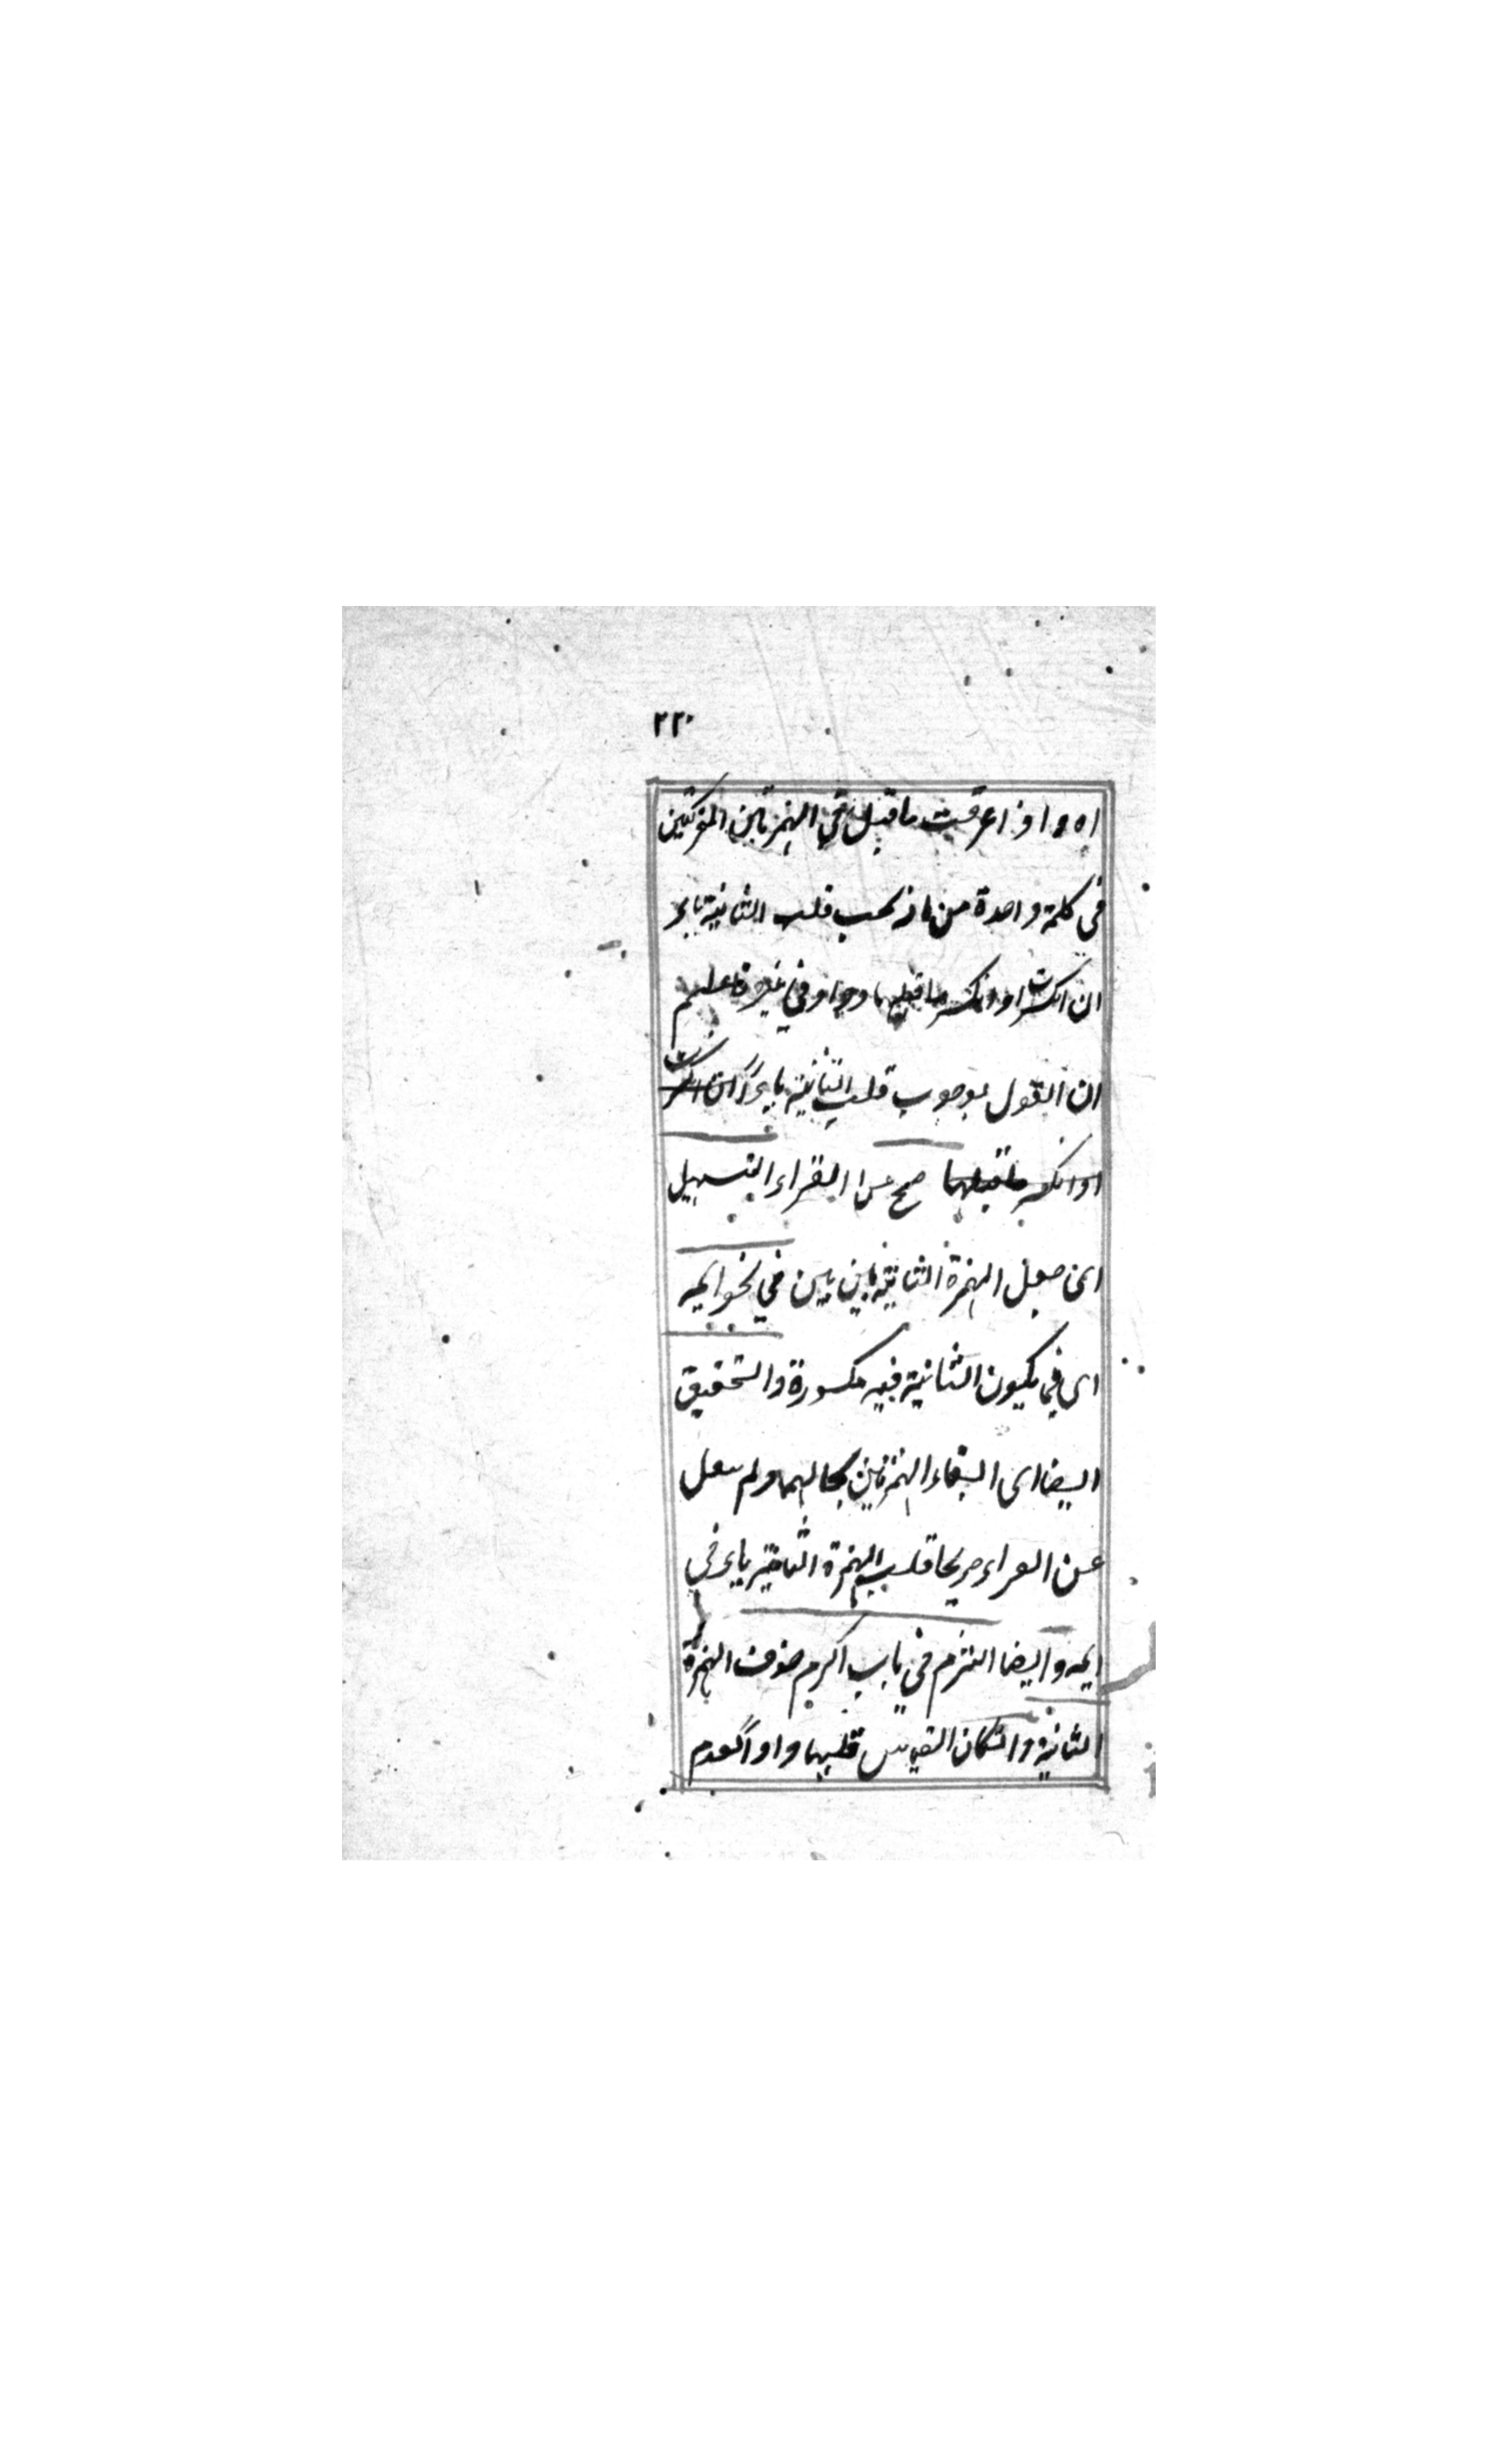 ٢٢٠
اه واذا عرفت ما قيل في الهمزتين المتحركتين
في كلمة واحدة من انه يجب قلب الثانية ياء
ان انكسرت او انكسر ما قبلها وواوا في غيره فاعلم
ان القول بوجوب قلب الثانية ياء ان انكسرت
او انكسر ما قبلها صح عن القراء التسهيل
اى جعل الهمزة الثانية بين بين في نحو ايمه
اى فيما يكون الثانية فيه مكسورة والتحقيق
ايضا اى ابقاء الهمزتين بحالهما ولم ينقل
عن القراء صريحا قلب الهمزة الثانية ياء في
ايمه وايضا التزم في باب اكرم حذف الهمزة
الثانية وان كان القياس قلبها واوا كعدم